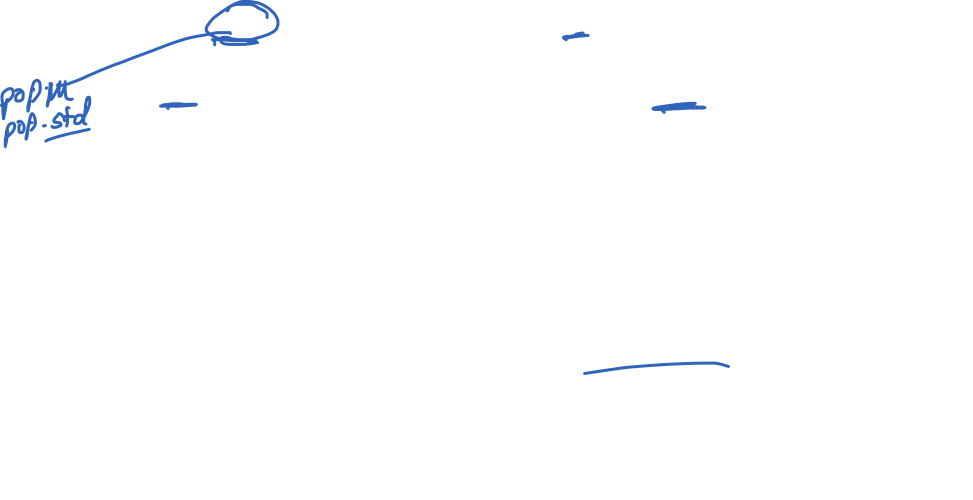 pop. μ
pop. std